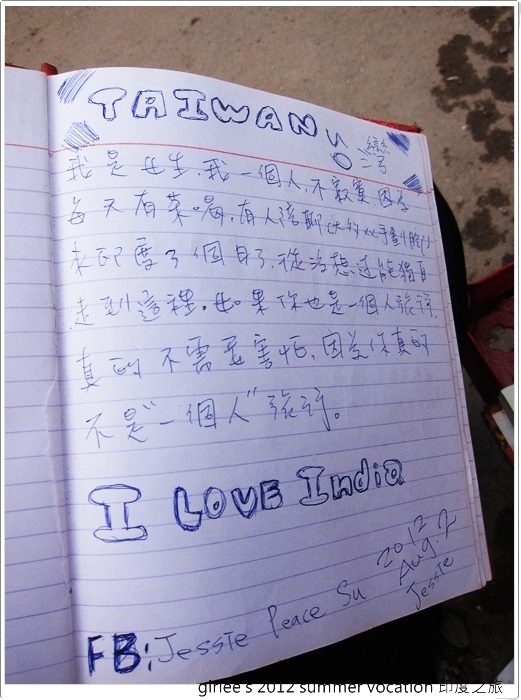 TAIWAN
我是女生.我一個人.不寂寞.因為
每天有茶喝.有人陪聊
來印度了個月了.從沒想過能獨自
走到這裡.如果你也是一個人旅行.
真的不需要害怕.因為你真的
不是"一個人"旅行。
I LOVE India
2012
Aug.2
Jessie
FB:Jessie Peace Su
girlee's 2012 summer vocation 印度之旅